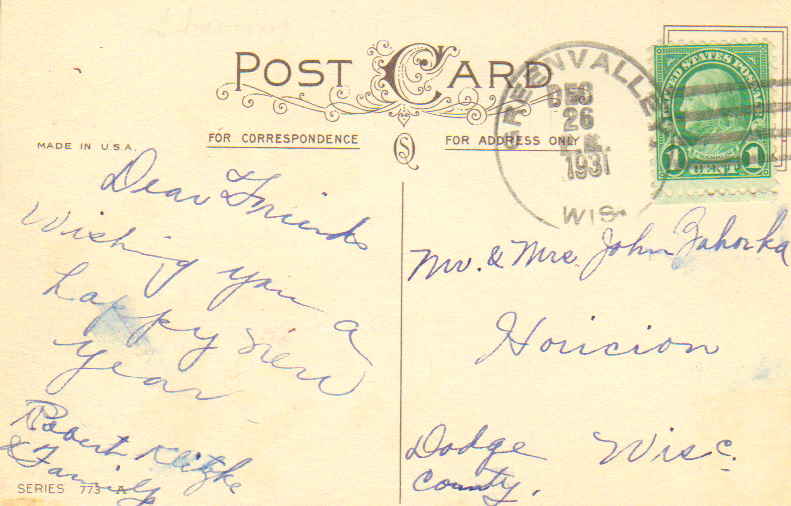 POST CARD
GREENVALLEY
DEC
26
1931
WIS.
UNITED STATES POSTAGE
1 CENT 1
MADE IN U.S.A.
FOR CORRESPONDENCE
FOR ADDRESS ONLY
Dear Friends
Wishing you a
happy New
year
Robert Klitzke
& Family
SERIES 773 A
Mr. & Mrs. John Zahorka
Horicion
Dodge Wisc.
County.